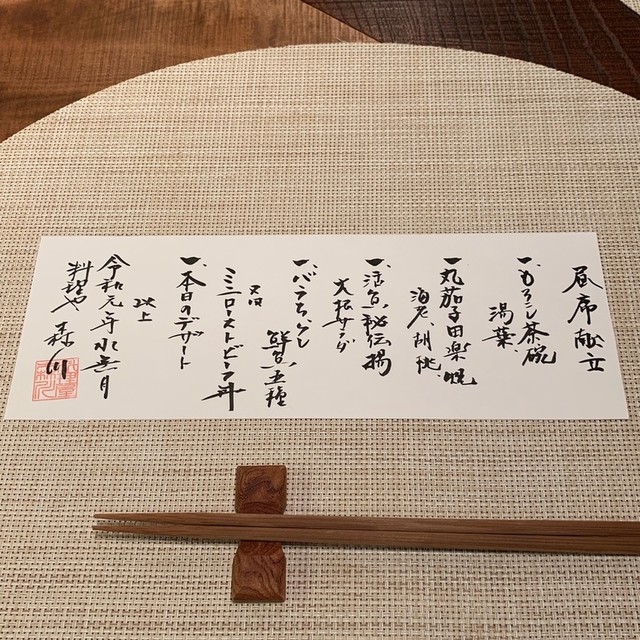 昼席献立
一、もろこし茶碗
湯葉、
一、丸茄子田楽焼
海老、胡桃、
一、活魚秘伝揚
大根サラダ
一、バラちらし
鮮魚五種
又は
ミニローストビーフ丼
一、本日のデザート
以上
令和元年水無月
料理や森川